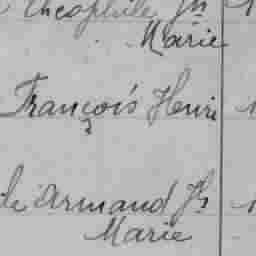 Théophile Jh
Marie
François Henri
de Armand Jh
Marie